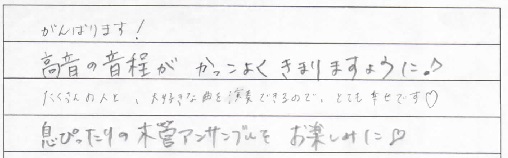 がんばります！
高音の音程が かっこよく きまりますように♪
たくさんの人と、大好きな曲を演奏できるので、とても幸せです♡
息ぴったりの木管アンサンブルを お楽しみに♡